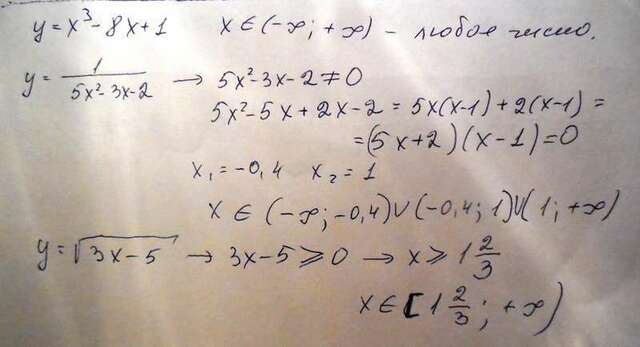 y = x³ - 8x + 1    x ∈ (-∞; +∞) - любое число.
y = 1/(5x² - 3x - 2) → 5x² - 3x - 2 ≠ 0
5x² - 5x + 2x - 2 = 5x(x-1) + 2(x-1) =
= (5x+2)(x-1) = 0
x₁ = -0,4    x₂ = 1
x ∈ (-∞; -0,4) ∪ (-0,4; 1) ∪ (1; +∞)
y = √(3x-5) → 3x-5 ⩾ 0 → x ⩾ 1 2/3
x ∈ [1 2/3; +∞)